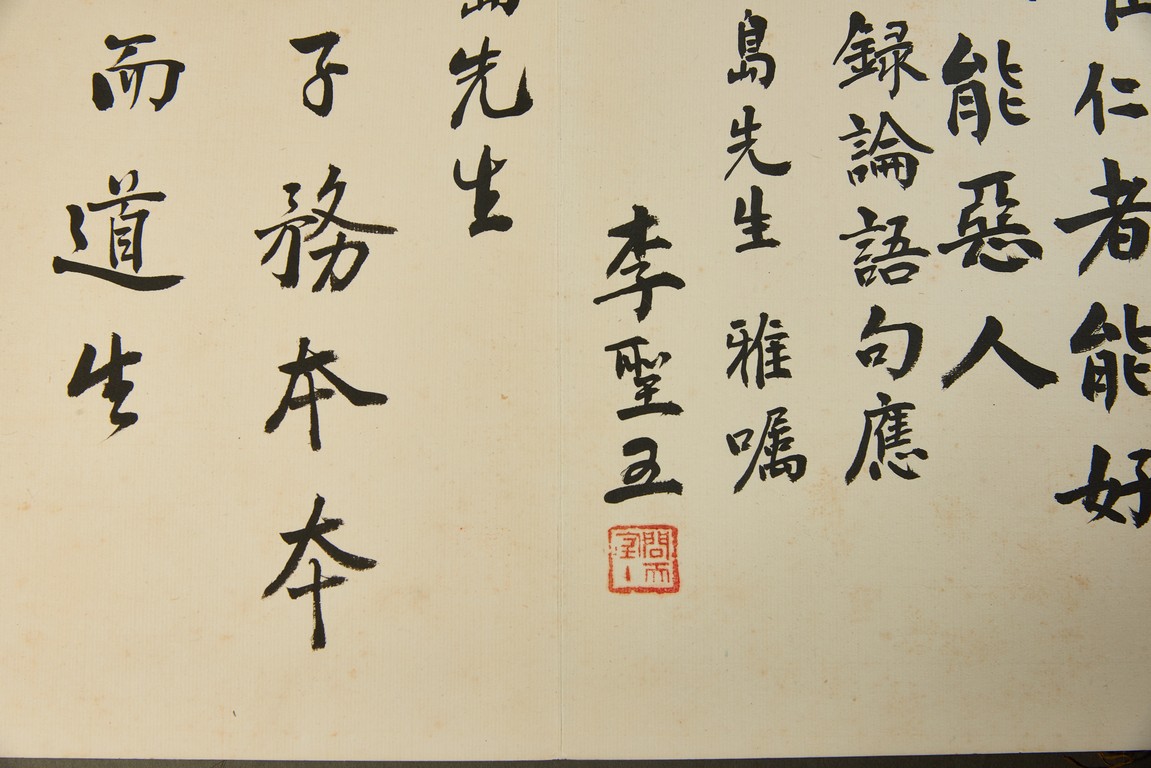 仁者能好
能惡人
録論語句應
島先生 雅嘱
李聖五
先生
子務本本
而道生